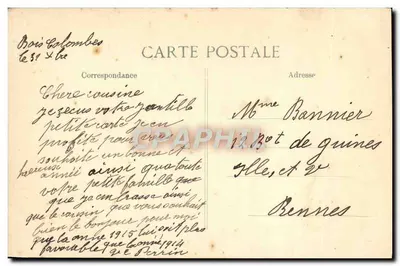 Bois Colombes
le 31 Xbre
CARTE POSTALE
Correspondance
Adresse
Chere cousine
je recus votre gentille
petite carte jen
profite pour
souhaité un bonne et
heureuse
année ainsi que toute
votre petite famille que
que jembrasse ainsi
que le cousin que vous souhait
bien le bonjour pour moi
que la anne 1915 lui soit plus
favorable que lanne 1914
Vve Perrin
Mme Bannier
12 Bot de guines
Ille et V
Rennes